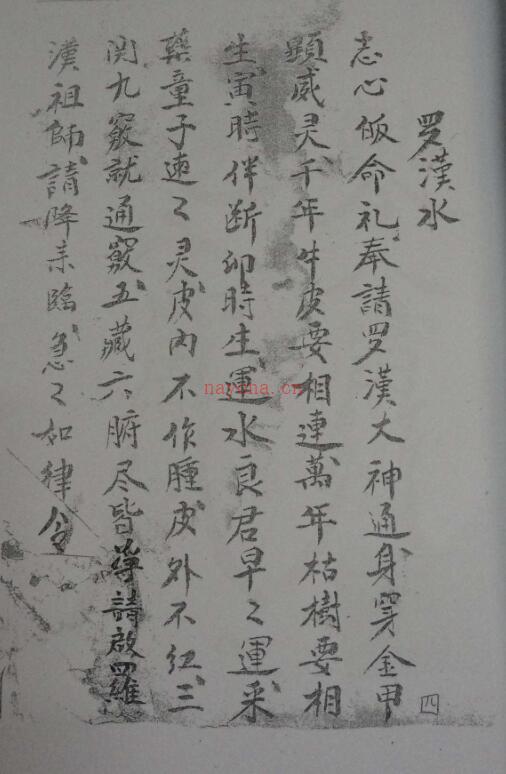 罗漢水
志心皈命礼奉請罗漢大神通身穿金甲
顕威灵千年牛皮要相連萬年枯樹要相
生寅時伴断卯時生運水良君早〻運采
藥童子速〻灵皮内不作腫皮外不紅三
関九竅就通竅五藏六腑尽皆尊請啟羅
漢祖師請降来臨急〻如律令
四
nayona.cn